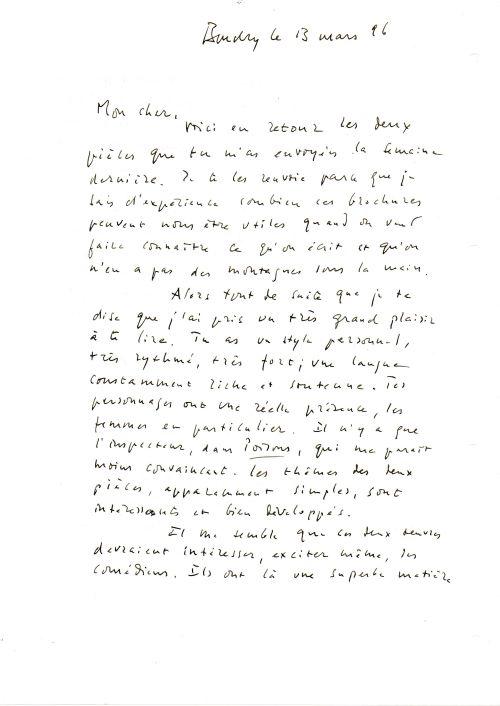 Boudry le 13 mars 96
Mon cher,
voici en retour les deux
pièces que tu m'as envoyées la semaine
dernière. Je te les renvoie parce que je
sais d'expérience combien ces brochures
peuvent nous être utiles quand on veut
faire connaître ce qu'on écrit et qu'on
n'en a pas des montagnes sous la main.
Alors tout de suite que je te
dise que j'ai pris un très grand plaisir
à te lire. Tu as un style personnel,
très rythmé, très fort; une langue
constamment riche et soutenue. Tes
personnages ont une réelle présence, les
femmes en particulier. Il n'y a que
l'inspecteur, dans Poisons, qui me paraît
moins convaincant. Les thèmes des deux
pièces, apparemment simples, sont
intéressants et bien développés.
Il me semble que ces deux œuvres
devraient intéresser, exciter même, les
comédiens. Ils ont là une superbe matière